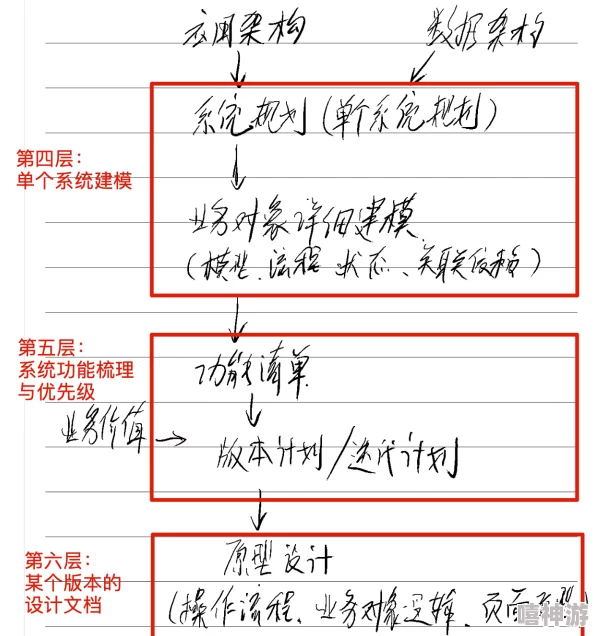 应用架构 数据架构
系统规划(单个系统规划)
第四层:
单个系统建模
业务对象详细建模
(模型、流程、状态、关联依赖)
第五层:
系统功能梳理
与优先级
功能清单
业务价值
版本计划/迭代计划
第六层:
某个版本的
设计文档
原型设计
(操作流程、业务对象逻辑、页面
嘻神游